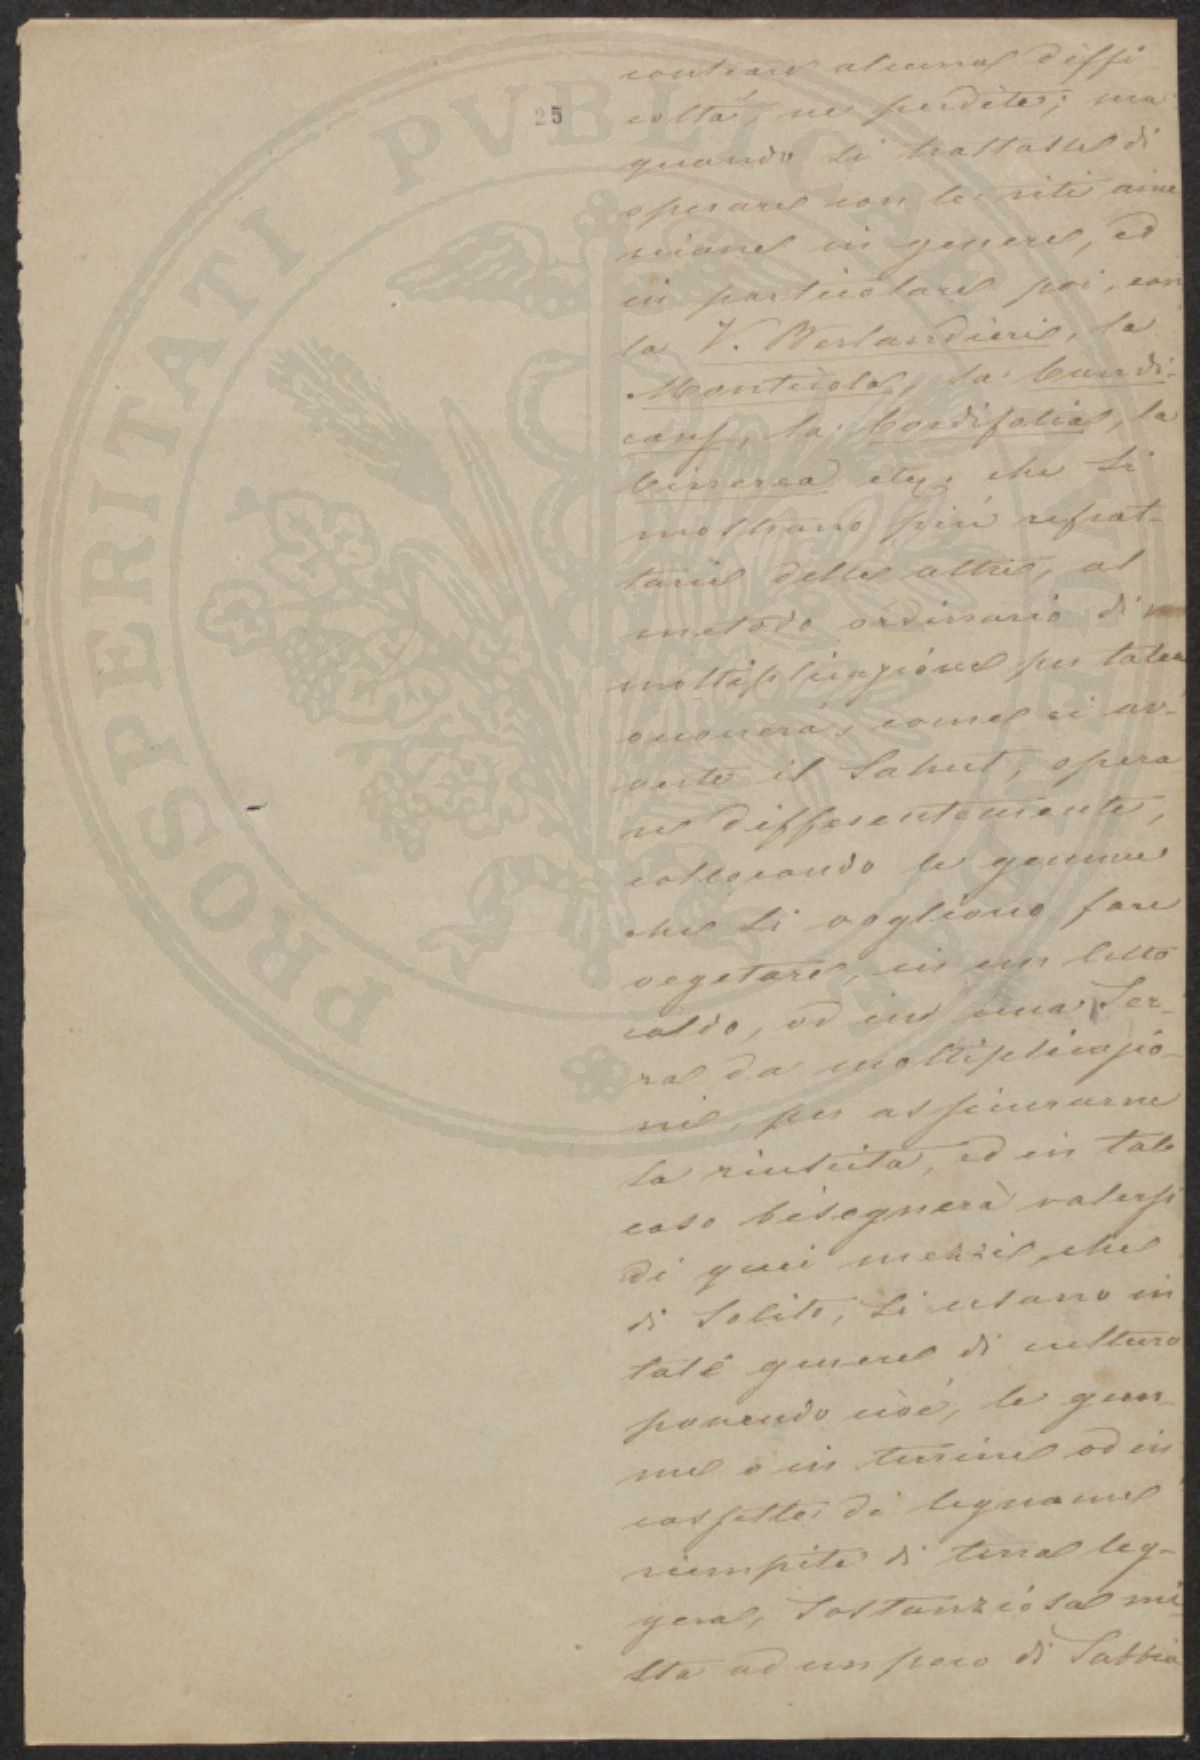 25
contrare alcuna diffi
coltá, ne perdite; ma
quando si trattasse di
operare con le viti ame
ricane in genere, ed
in particolare poi, con
la V. Berlandieri, la
Monticola, la Candi-
cans, la Cordifolia, la
Cinerea etc. che si
mostrano più refrat-
tarie delle altre, al
metodo ordinario di
moltiplicazióne per talea
converrà, come ci av-
verte il Sahut, opera
re differentemente,
collocando le gemme
che si vogliono fare
vegetare, in un letto
caldo, od in una Ser-
ra da moltiplicazió-
ni, per assicurarne
la riuscita, ed in tale
caso bisognerà valersi
di quei mezzi, che
di Solito, si usano in
tale genere di cultura
ponendo cioè, le gem-
me o in terrine od in
cassette di legname
riempite di terra leg-
gera, Sostanziósa mi-
sta ad un poco di Sabbia
PROSPERITATI PVBLICAE